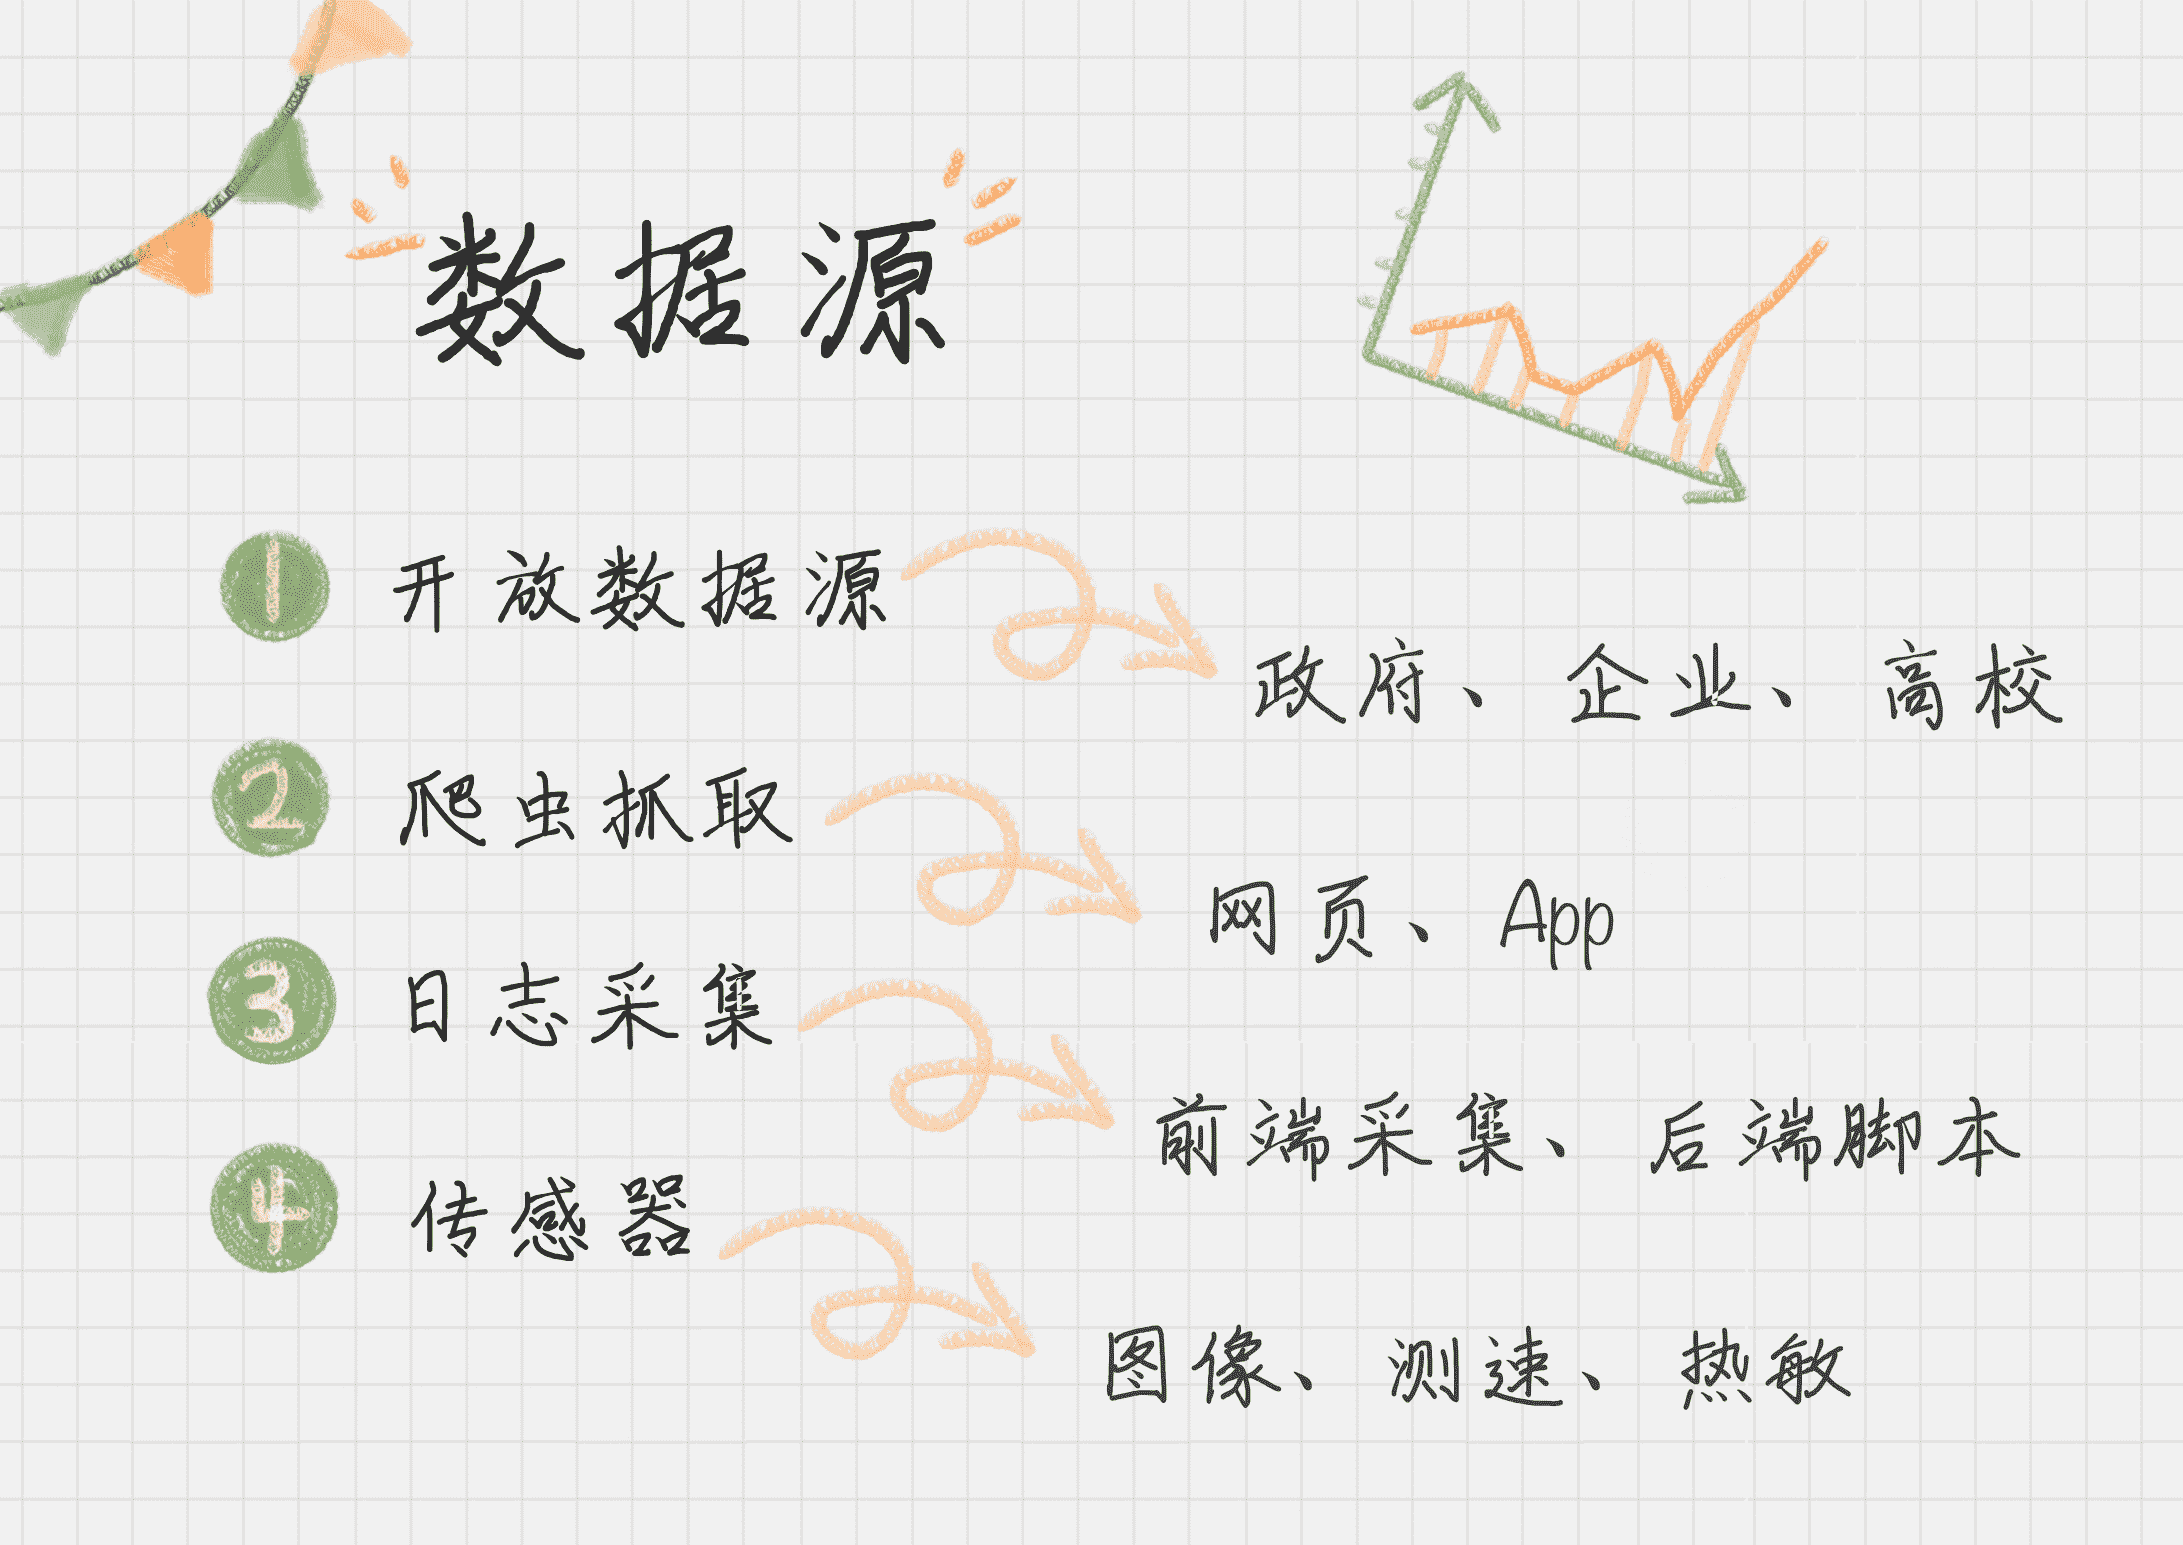 数据源
1 开放数据源
政府、企业、高校
2 爬虫抓取
网页、App
3 日志采集
前端采集、后端脚本
4 传感器
图像、测速、热敏